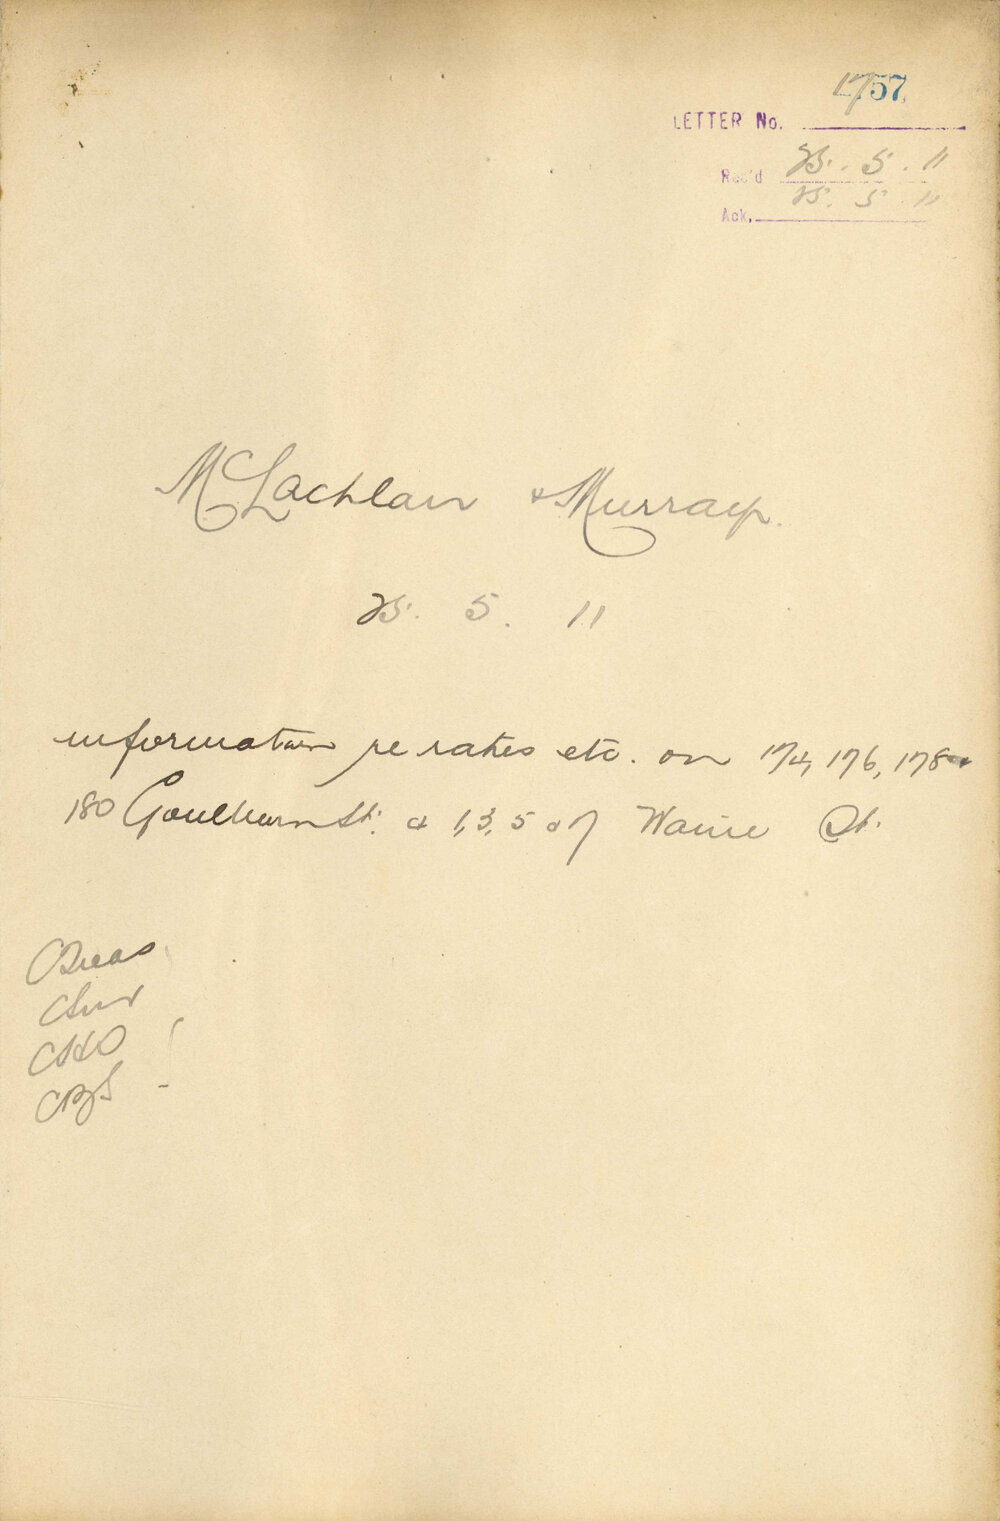 1757
LETTER No.
Rec'd 25. 5. 11
Ack. 25. 5. 11
McLachlan & Murray.
25. 5. 11
information re rates etc. on 174, 176, 178 &
180 Goulburn St. & 1, 3, 5 & 7 Waine St.
CTreas
CSur
CHO
CBS